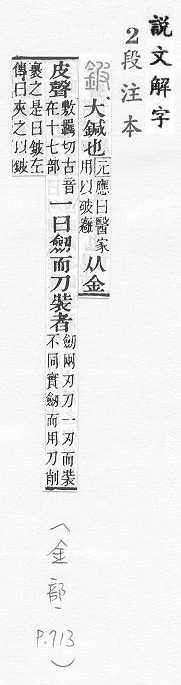 說文解字
2段注本
鈹、大鍼也元應曰醫家用以破癰从金
皮聲敷羈切古音在十七部一曰劒而刀裝者劒兩刃刀一刃而裝不同實劒而用刀削
裹之是曰鈹左傳曰夾之以鈹
(金部、P.713)